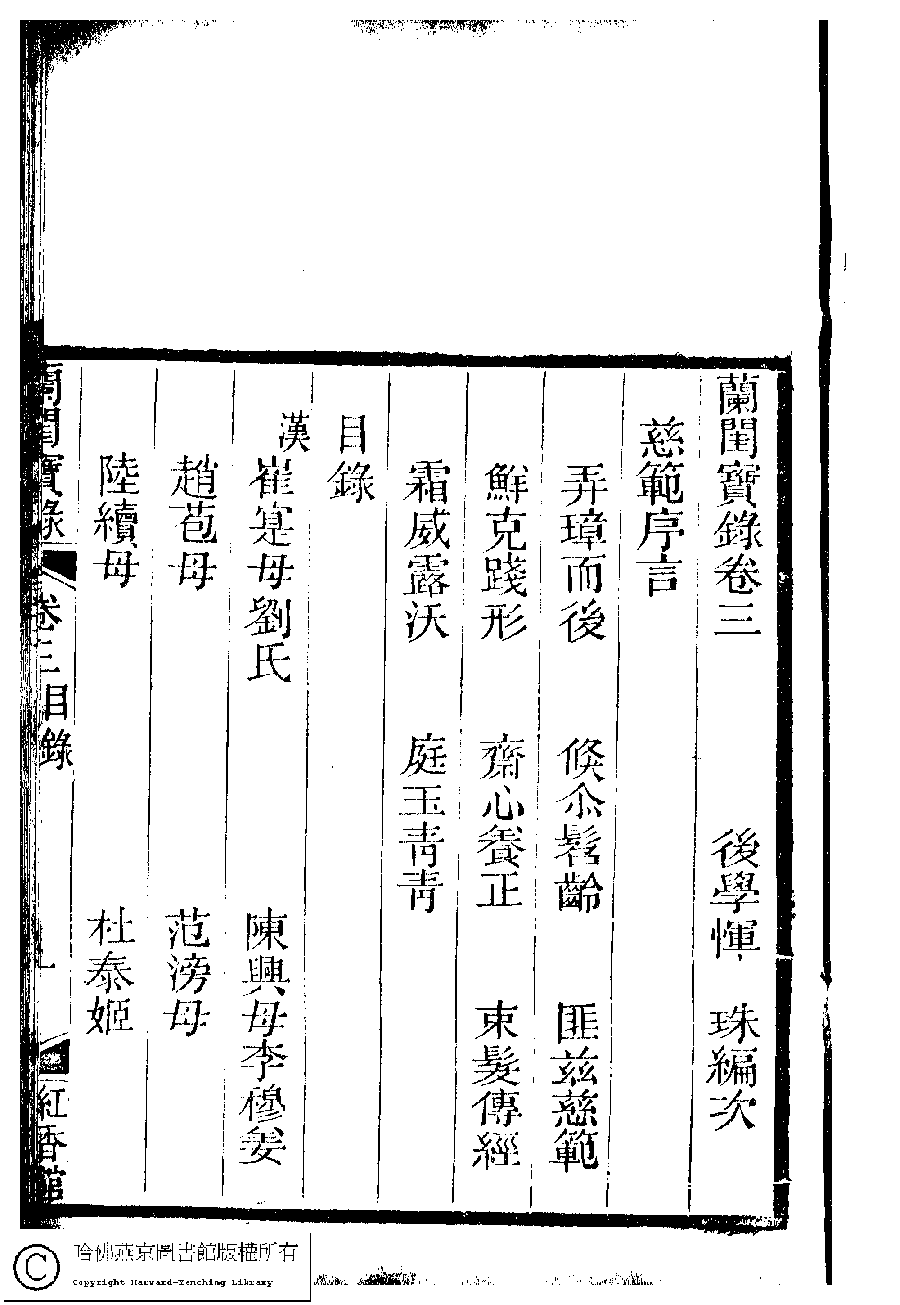 蘭閨寶錄卷三　後學惲　珠編次
慈範序言
弄璋而後　倐尒髫齡　匪兹慈範
鮮克踐形　齋心養正　束髮傳經
霜威露沃　庭玉青青
目錄
漢
崔寔母劉氏　陳興母李穆姜
趙苞母　范滂母
陸續母　杜泰姬
蘭閨寶錄　卷三目錄　紅香館
哈佛燕京圖書館版權所有
Copyright Harvard-Yenching Library